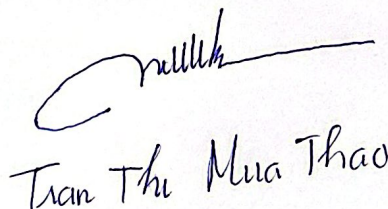 Tran Thi Mua Thao